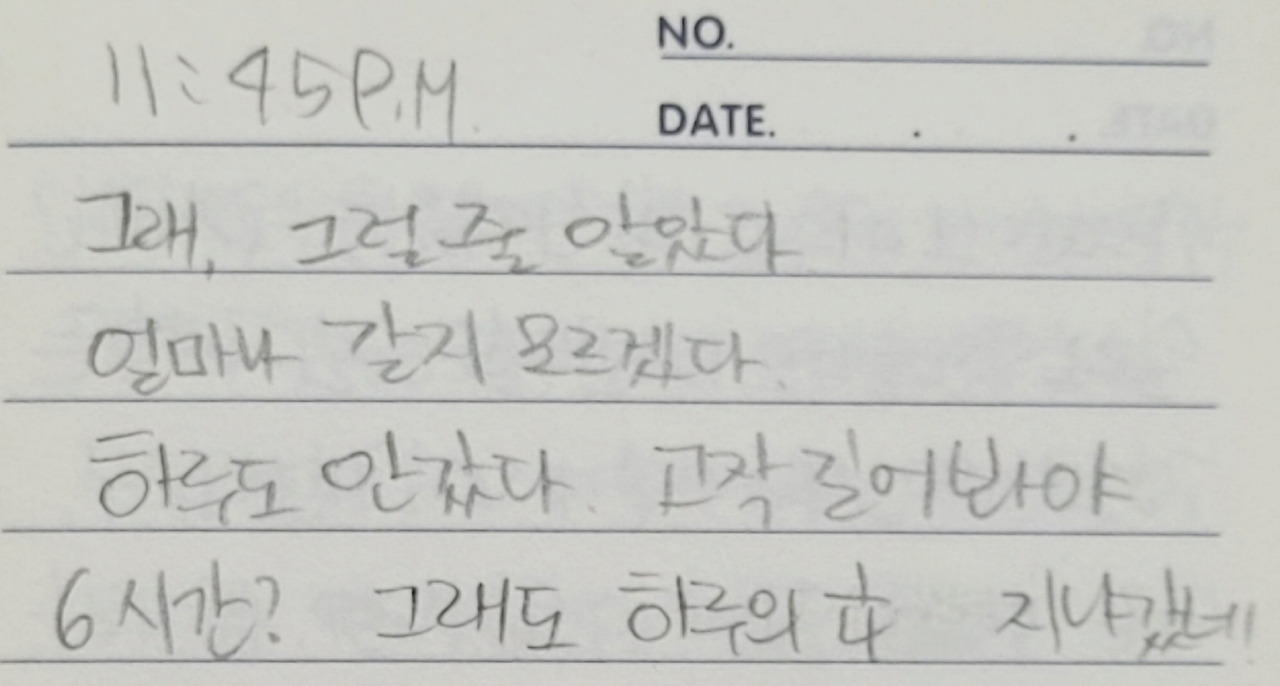 NO.
11:45 P.M.
DATE. . .
그래, 그럴 줄 알았다
얼마나 갈지 모르겠다.
하루도 안갔다. 고작 길어봐야
6시간? 그래도 하루의 1/4 지나갔네